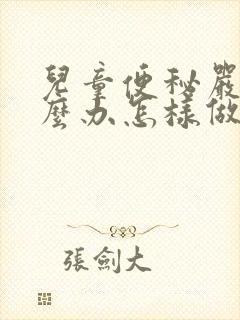 兒童便秘嚴
麼办怎樣做
張劍大